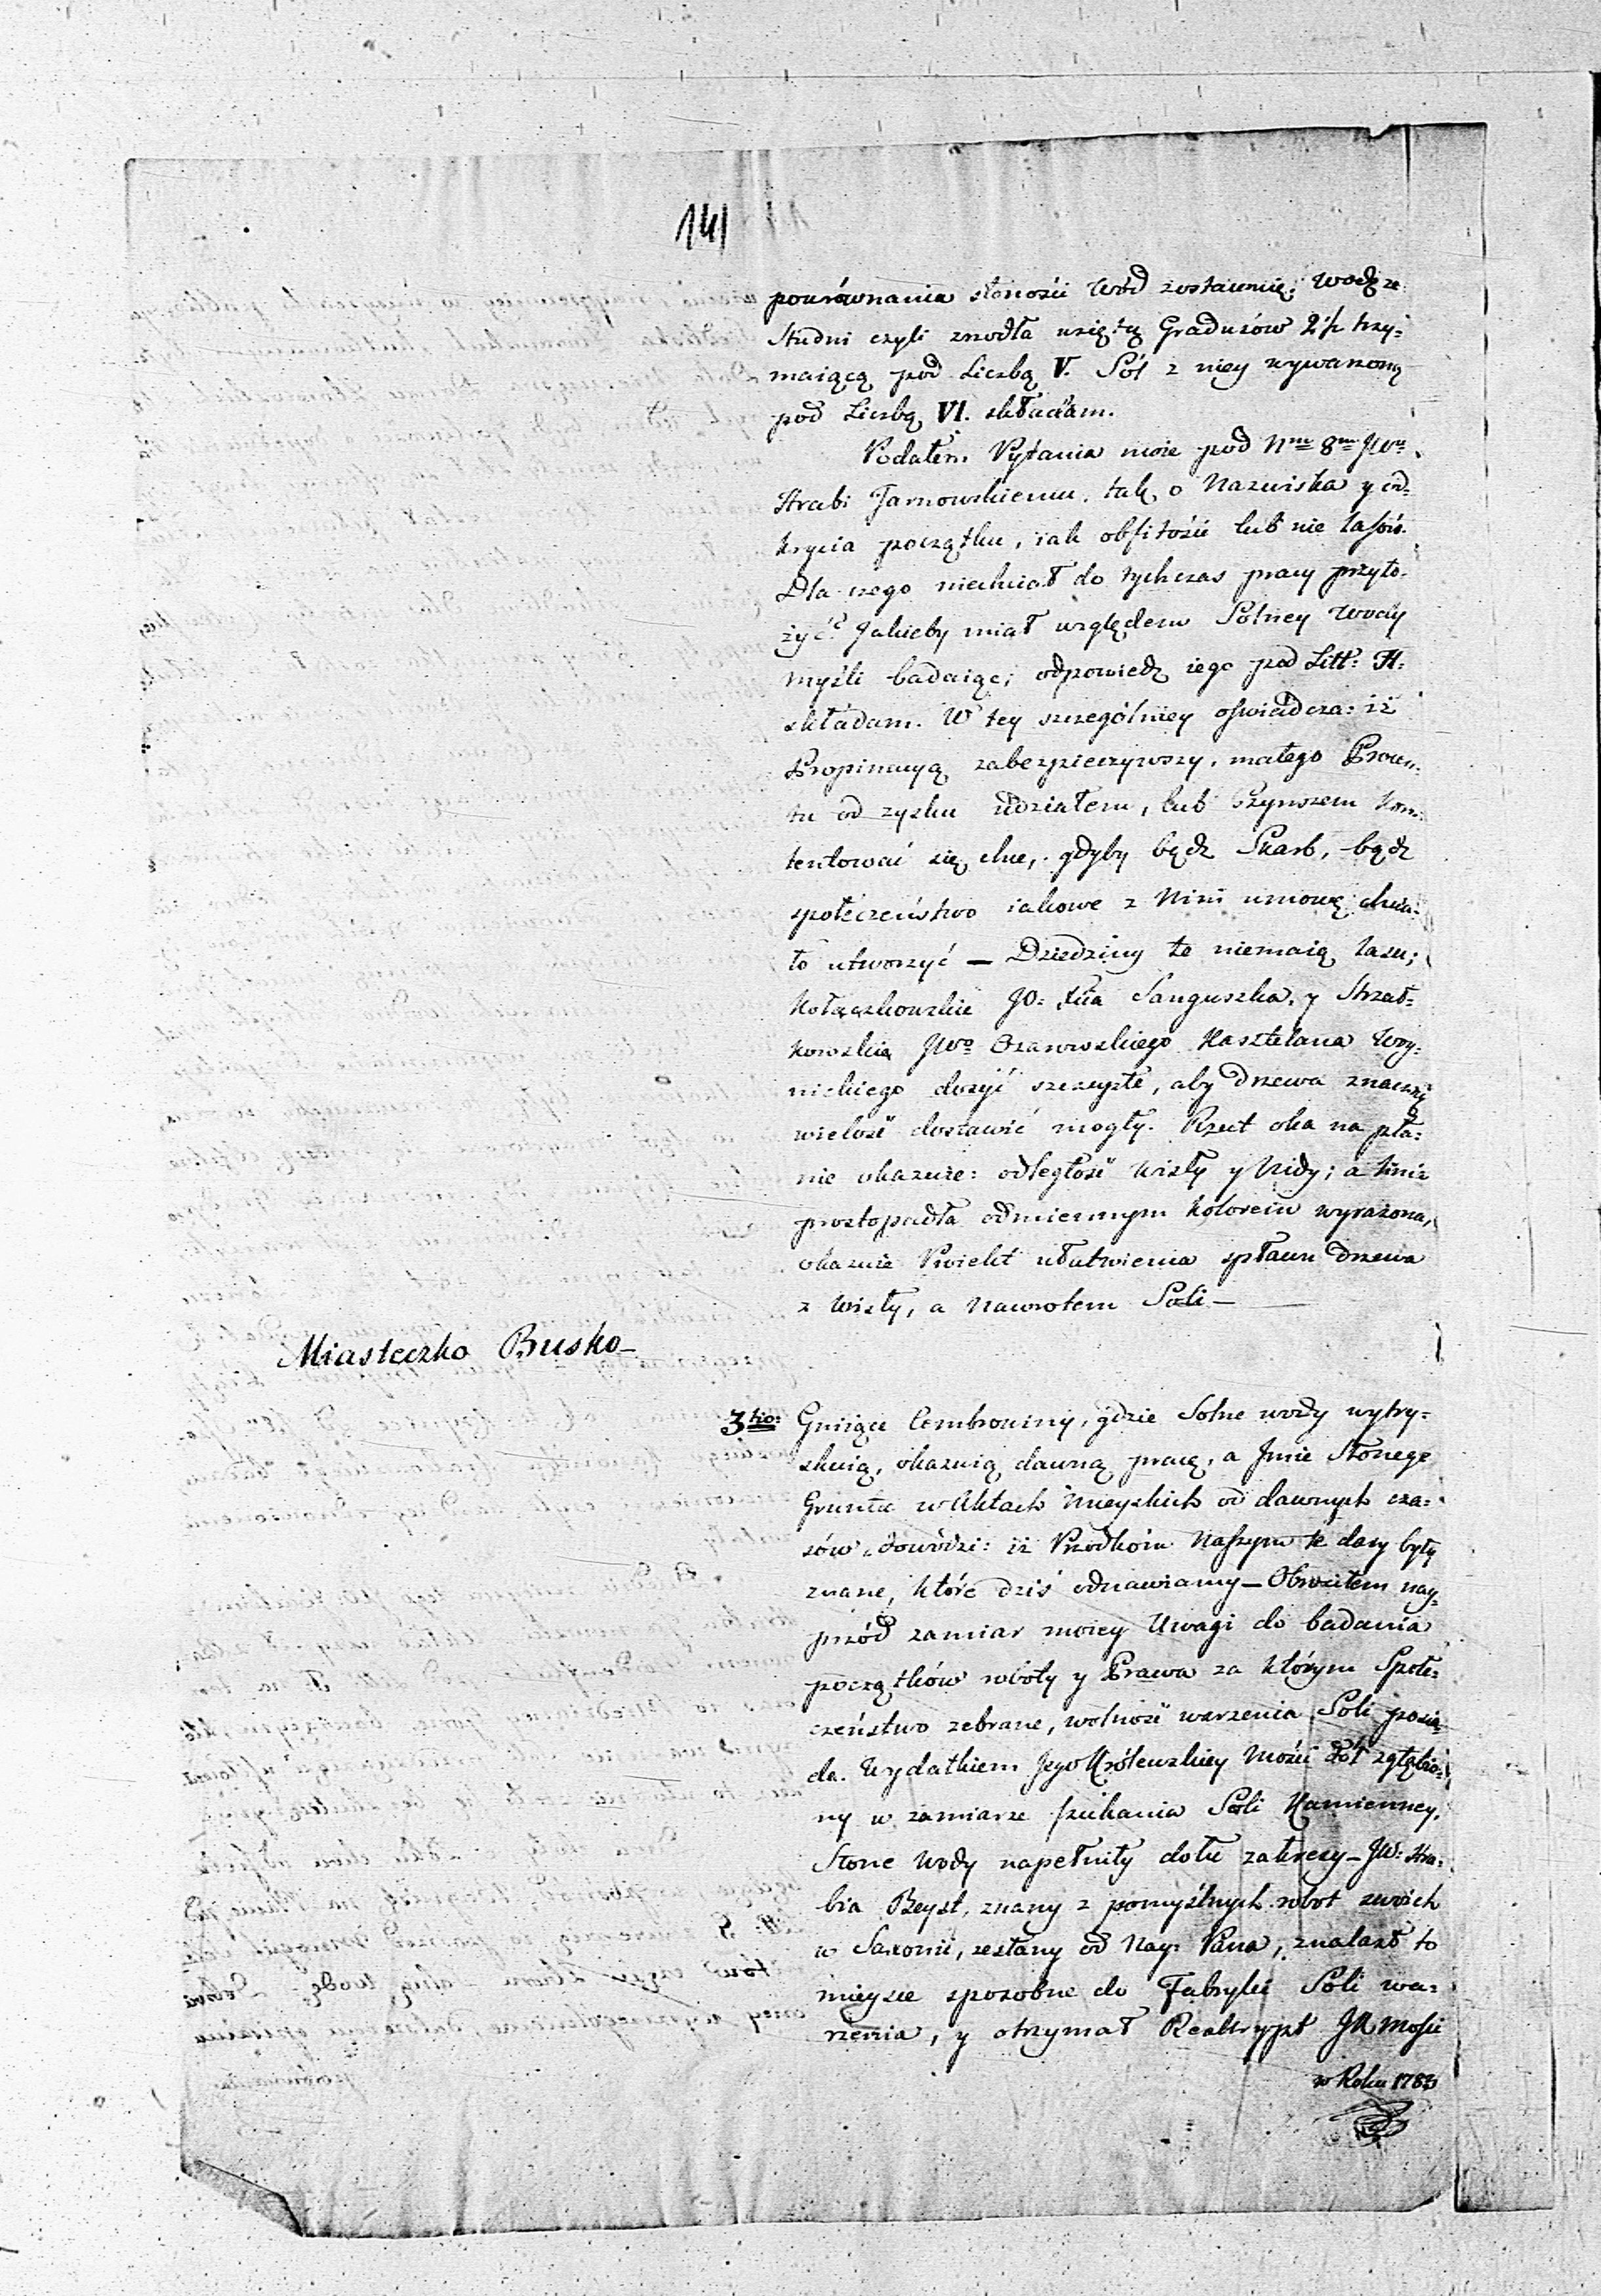 141
porównania słoności wód zostawuię; wodę ze
Studni czyli zrzodła wziętą Graduсów 2½ trzy=
maiącą pod Liczbą V. Sól z niey wywarzoną
pod Liczbą VI. składam.
Podałem Pytania moie pod Nm 8m JWu
Hrabi Tarnowskiemu, tak o Nazwiska y od=
krycia początku, iak obfitości lub nie lasów.
Dla czego niechciał do tychczas pracy przyło=
żyć? Jakieby miał względem Solney wody
myśli badaiąc; odpowiedź iego pod Litt: H:
składam. W tey szczególniey oświadcza: iż
Propinacyą zabezpieczywszy, małego Prowen=
tu od zysku udziałem, lub Czynszem kon=
tentować się chce, gdyby bądź Skarb, bądź
społeczeństwo iakowe z Nim umowę chcia=
ło utworzyć — Dziedziny te niemaią lasu;
Kołaczkowskie JO: Xcia Sanguszka, y Strzał=
kowskie JWo Ozarowskiego Kasztelana Woy=
nickiego dosyć szczupłe, aby drzewa znaczną
wielość dostawić mogły. Rzut oka na pla=
nie okazuie: odległość Wisły y Nidy; a linia
prostopadła odmiennym kolorem wyrażona,
okazuie Proiekt ułatwienia spławu drzewa
z Wisły, a nawrotem Soli —
Miasteczko Busko —
3tio: Gniiące Cembrowiny, gdzie Solne wody wytry=
skuią, okazuią dawną pracę, a Jmie Słonego
Gruntu w Aktach Mieyskich od dawnych cza=
sów, dowodzi: iż Przodkom Naszym te dary były
znane, które dziś odnawiamy — Obrociłem nay=
przód zamiar moiey Uwagi do badania
początków roboty y Prawa za którym Społe=
czeństwo zebrane, wolność warzenia Soli posia=
da. Wydatkiem Jego Królewskiey Mości dół zgłębio=
ny w zamiarze szukania Soli Kamienney,
Słone Wody napełniły dołu zakresy — JW: Hra=
bia Beyst, znany z pomyślnych robot swoich
w Saxonii, zesłany od Nay: Pana, znalazł to
mieysce sposobne do Fabryki Soli wa=
rzenia, y otrzymał Reskrypt JK Mości
w Roku 1783